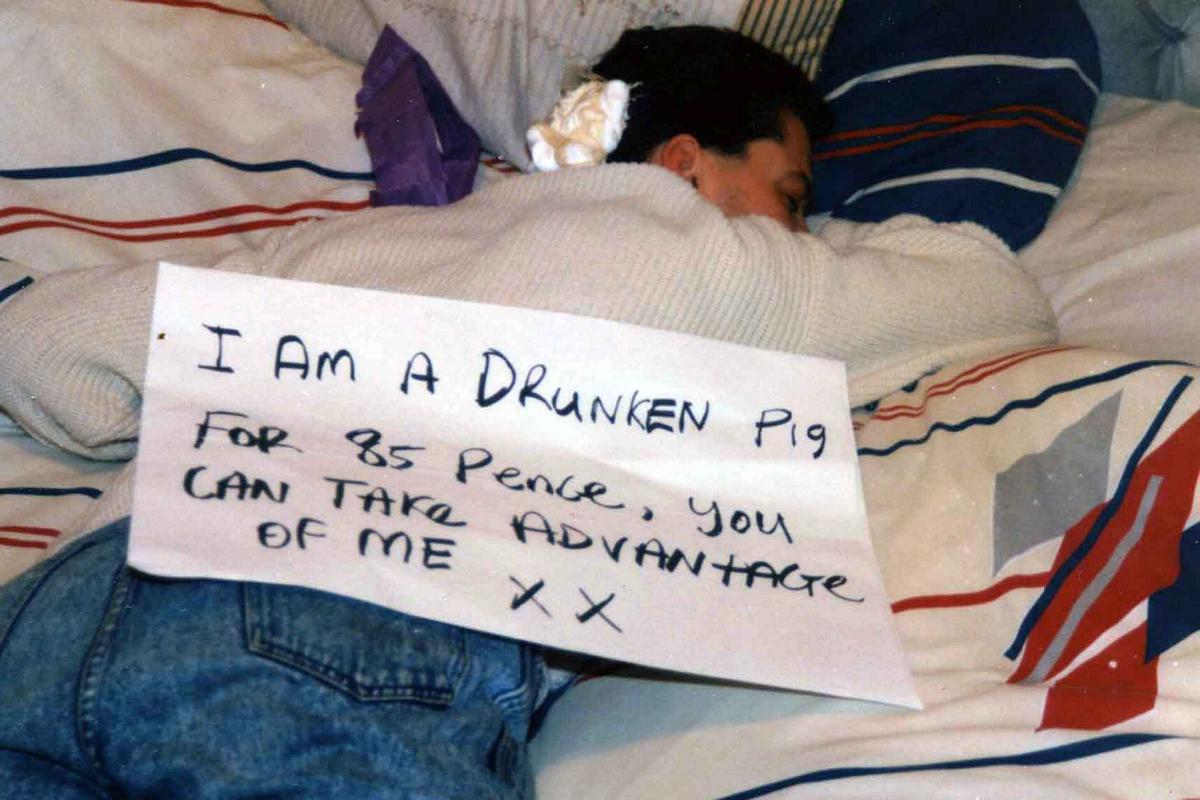 I AM A DRUNKEN Pig
FOR 85 Pence, you
CAN TAKe ADVANtAGe
OF ME XX